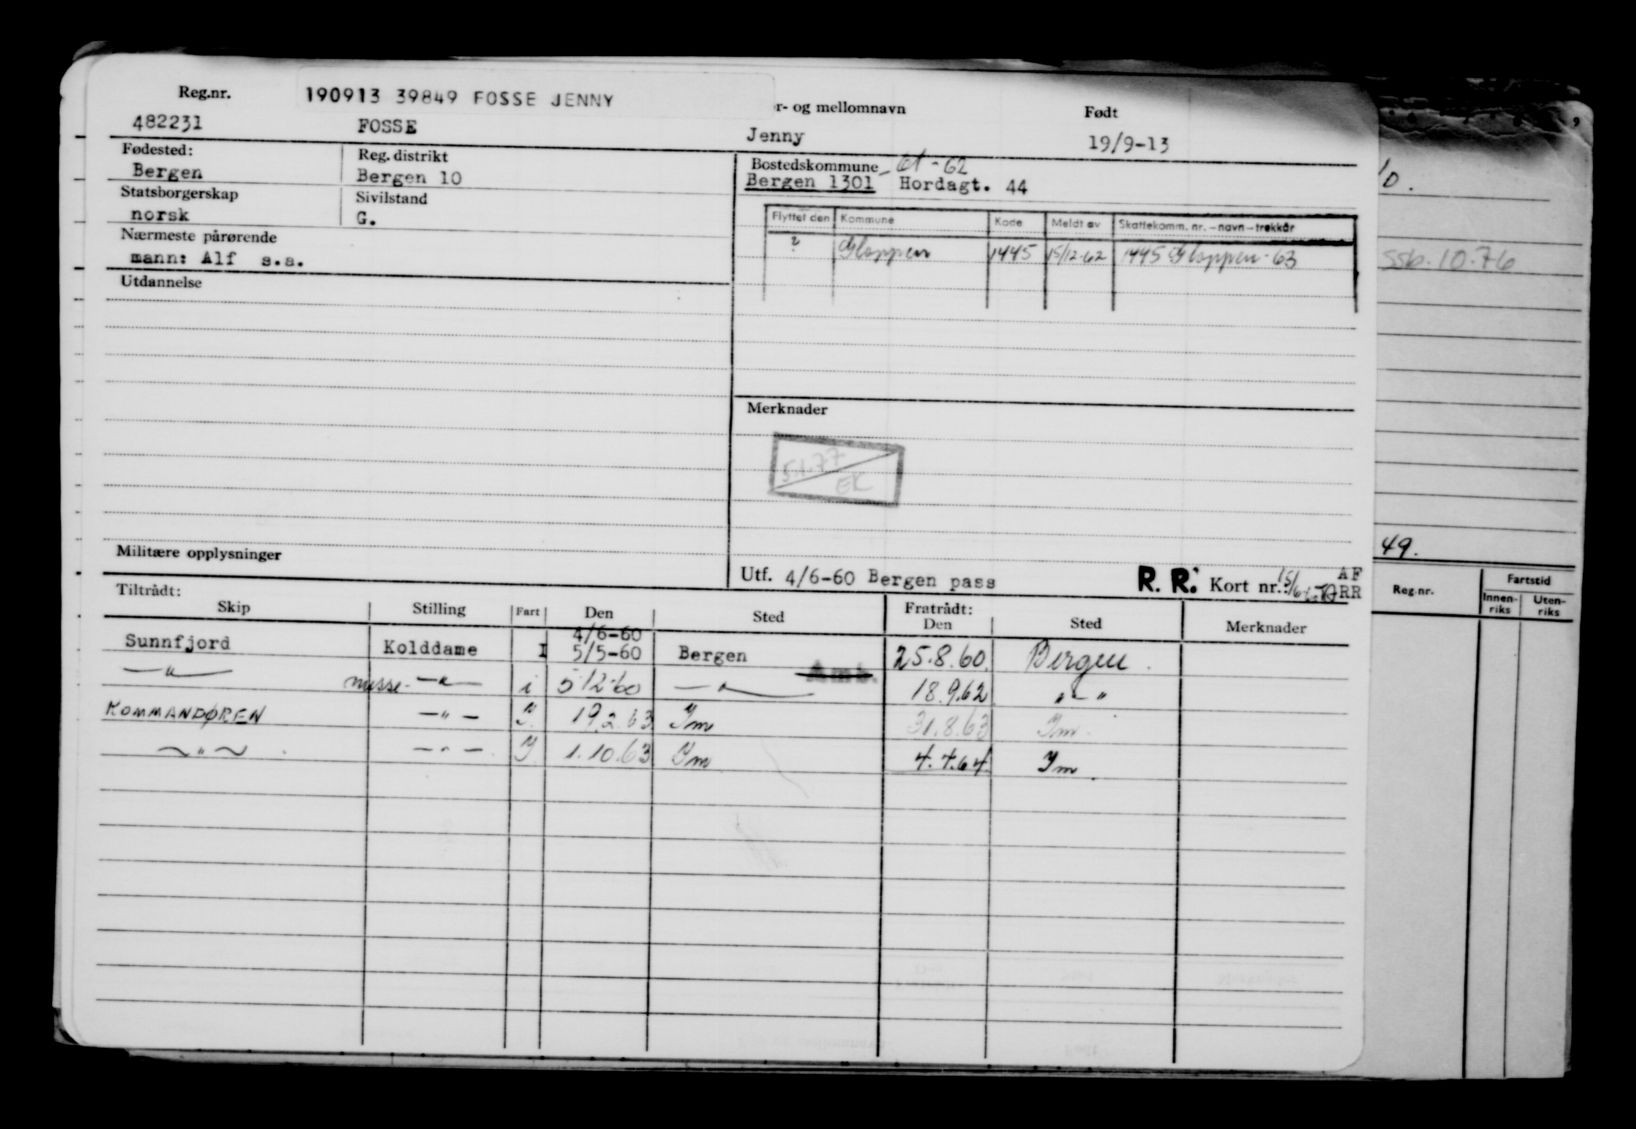 Reg.nr. 190913 39849 FOSSE JENNY r- og mellomnavn Født
482231 FOSSE Jenny 19/9-13
Fødested: Reg. distrikt Bostedskommune - 61-62
Bergen Bergen 10 Bergen 1301 Hordagt. 44
Statsborgerskap Sivilstand
norsk G.
Flyttet den Kommune Kode Meldt av Skattekomm. nr. - navn - trekkår
? Gloppen 1445 15/12-62 1445 Gloppen - 63
Nærmeste pårørende
mann: Alf s.a.
Utdannelse
Merknader
5.1.77
EK
Militære opplysninger
Utf. 4/6-60 Bergen pass R. R. Kort nr.: AF
RR
Tiltrådt: Fratrådt:
Skip Stilling Fart Den Sted Den Sted Merknader
4/6-60
Sunnfjord Kolddame I 5/5-60 Bergen 25.8.60. Bergen.
Amb.
—"— messe- —"— i 5 12 60 —"— 18.9.62 —"—
KOMMANDØREN —"— I. 19.2.63 Im 31.8.63 Im.
—"— —"— I 1.10.63 Im 4.4.64. Im.
10.
ssb. 10.76
49.
Reg.nr. Fartstid
Innen-
riks Uten-
riks